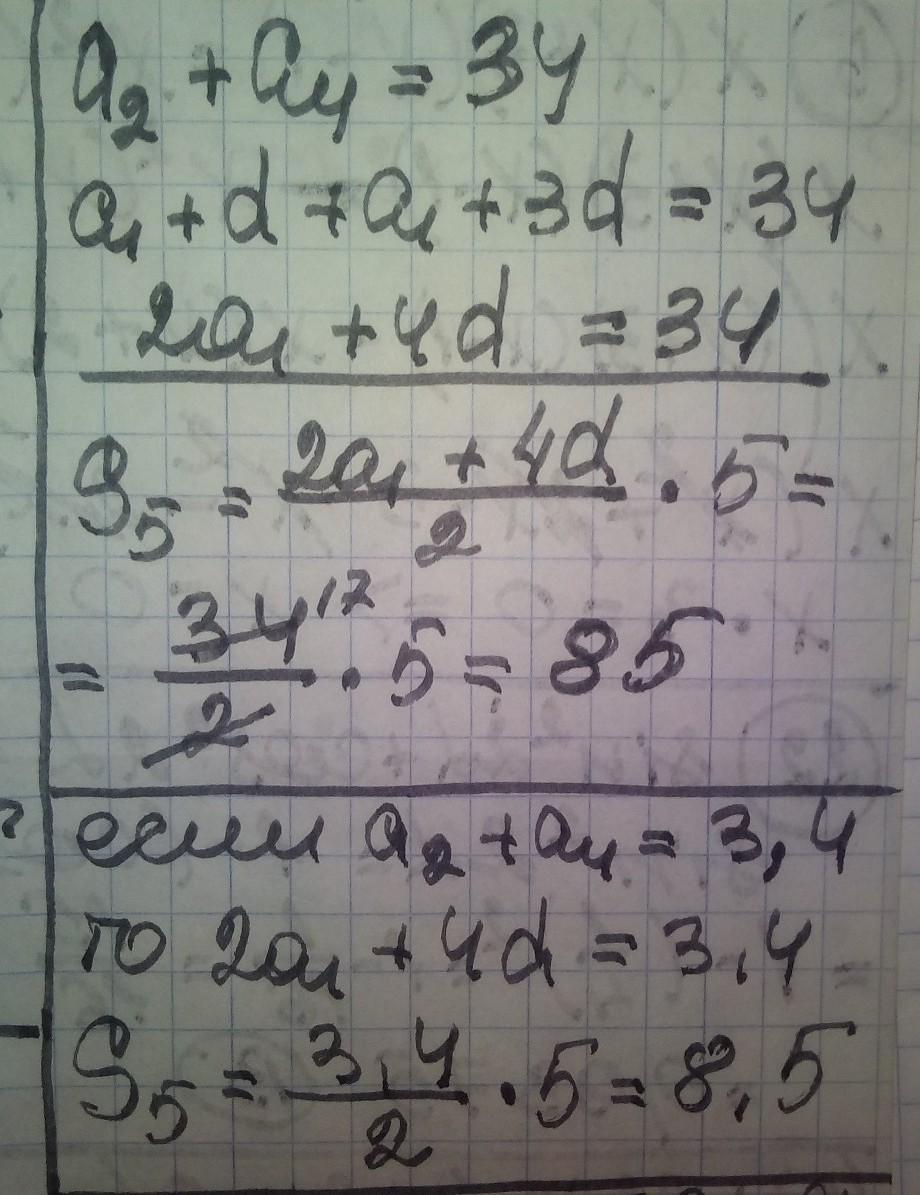 a₂ + a₄ = 34
a₁ + d + a₁ + 3d = 34
2a₁ + 4d = 34
S₅ = (2a₁ + 4d)/2 · 5 =
= 34/2 ¹⁷ · 5 = 85
если a₂ + a₄ = 3,4
то 2a₁ + 4d = 3,4
S₅ = 3,4/2 · 5 = 8,5